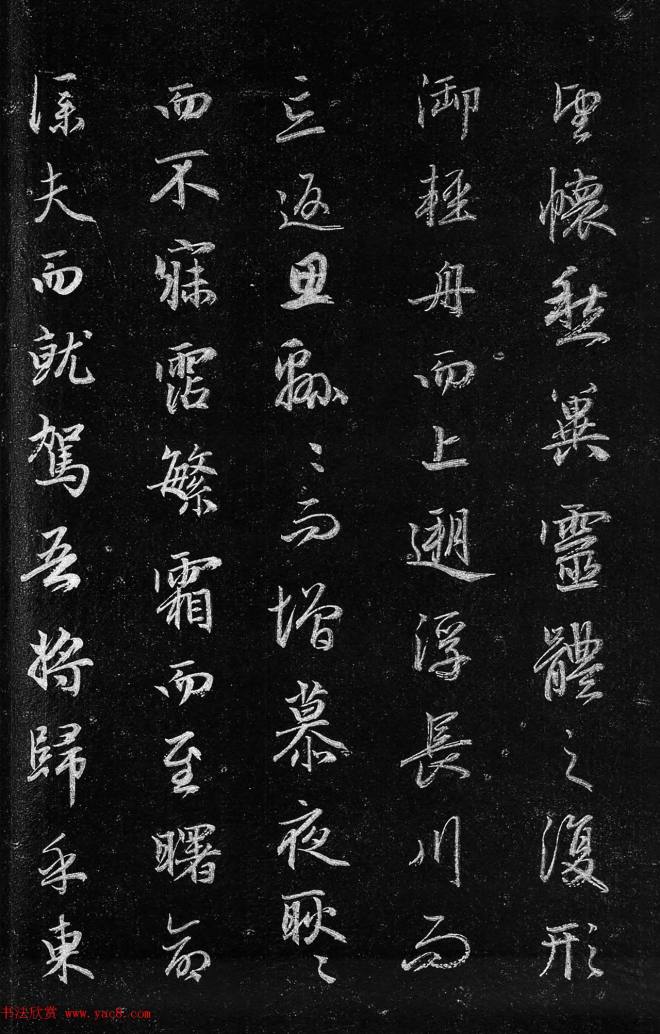 望懷愁冀靈體之復形
御輕舟而上遡浮長川而
忘返思緜〻而增慕夜耿〻
而不寐霑繁霜而至曙命
僕夫而就駕吾將歸乎東
书法欣赏 www.yac8.com